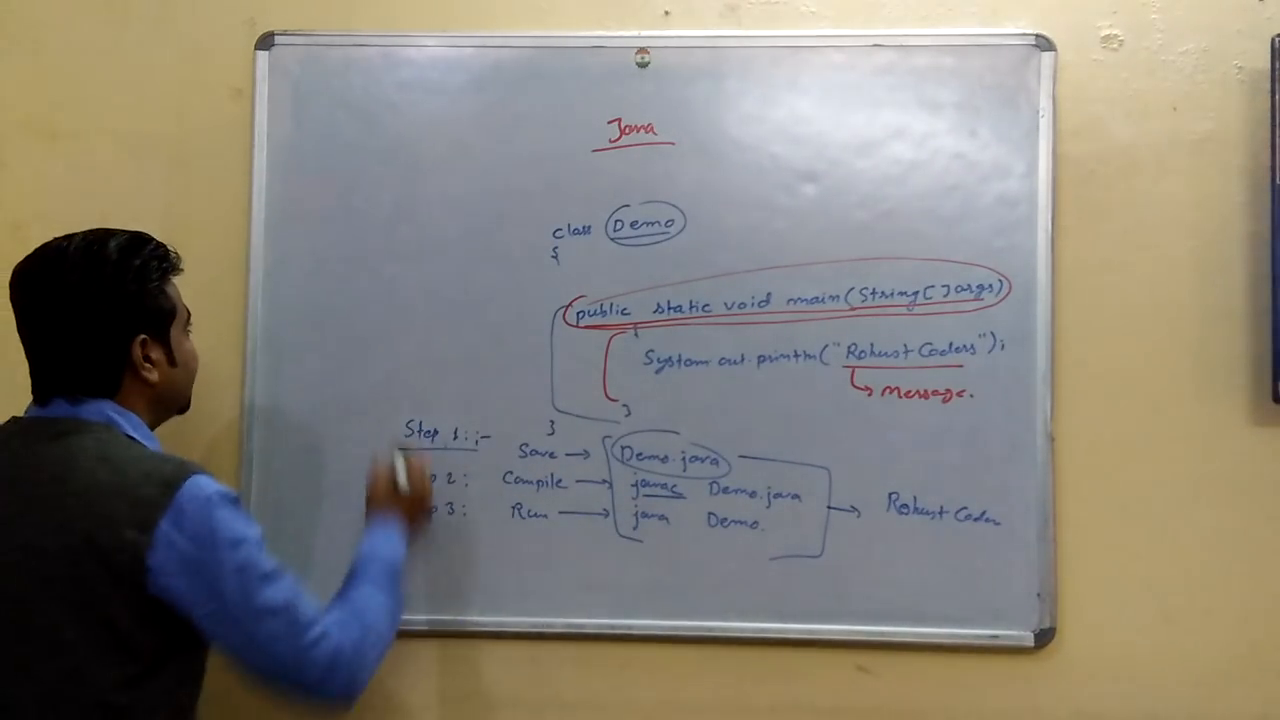 Java
class Demo
{
public static void main(String[] args)
{
System.out.println("Robust Coders");
message.
}
}
Step 1:- Save → Demo.java
2: Compile → javac Demo.java
3: Run → java Demo.
→ Robust Coder